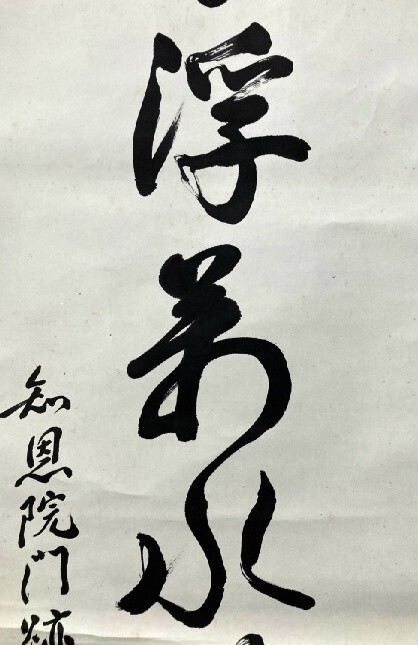 浮萬水
知恩院門跡